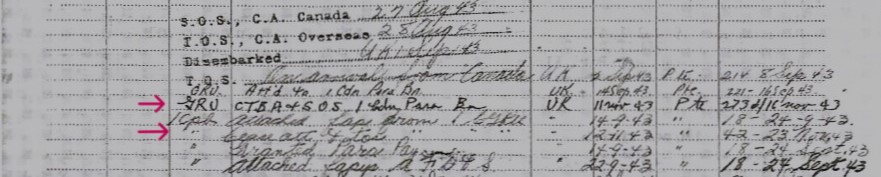 S.O.S., C.A. Canada 27 Aug 43
T.O.S., C.A. Overseas 28 Aug 43
Disembarked UK 1 Sep 43
T.O.S. from Canada UK 2 Sep 43 Pte 214 8 Sep 43
GRU Att'd to 1 Cdn Para Bn UK 14 Sep 43 Pte. 221 - 16 Sep. 43
GRU CTBA & SOS, 1 Cdn Para Bn UK 11 Nov 43 Pte 273 d/16 Nov 43
attached from " 14-9-43 " 18 - 24 - 9 - 43
" Ceases att & TOS " 12-11-43 " 42 - 23 Nov 43
" Granted Para Pay " 14-9-43 " 18 - 24 Sept. 43
" attached " 22-9-43 " 18 - 24 Sept. 43